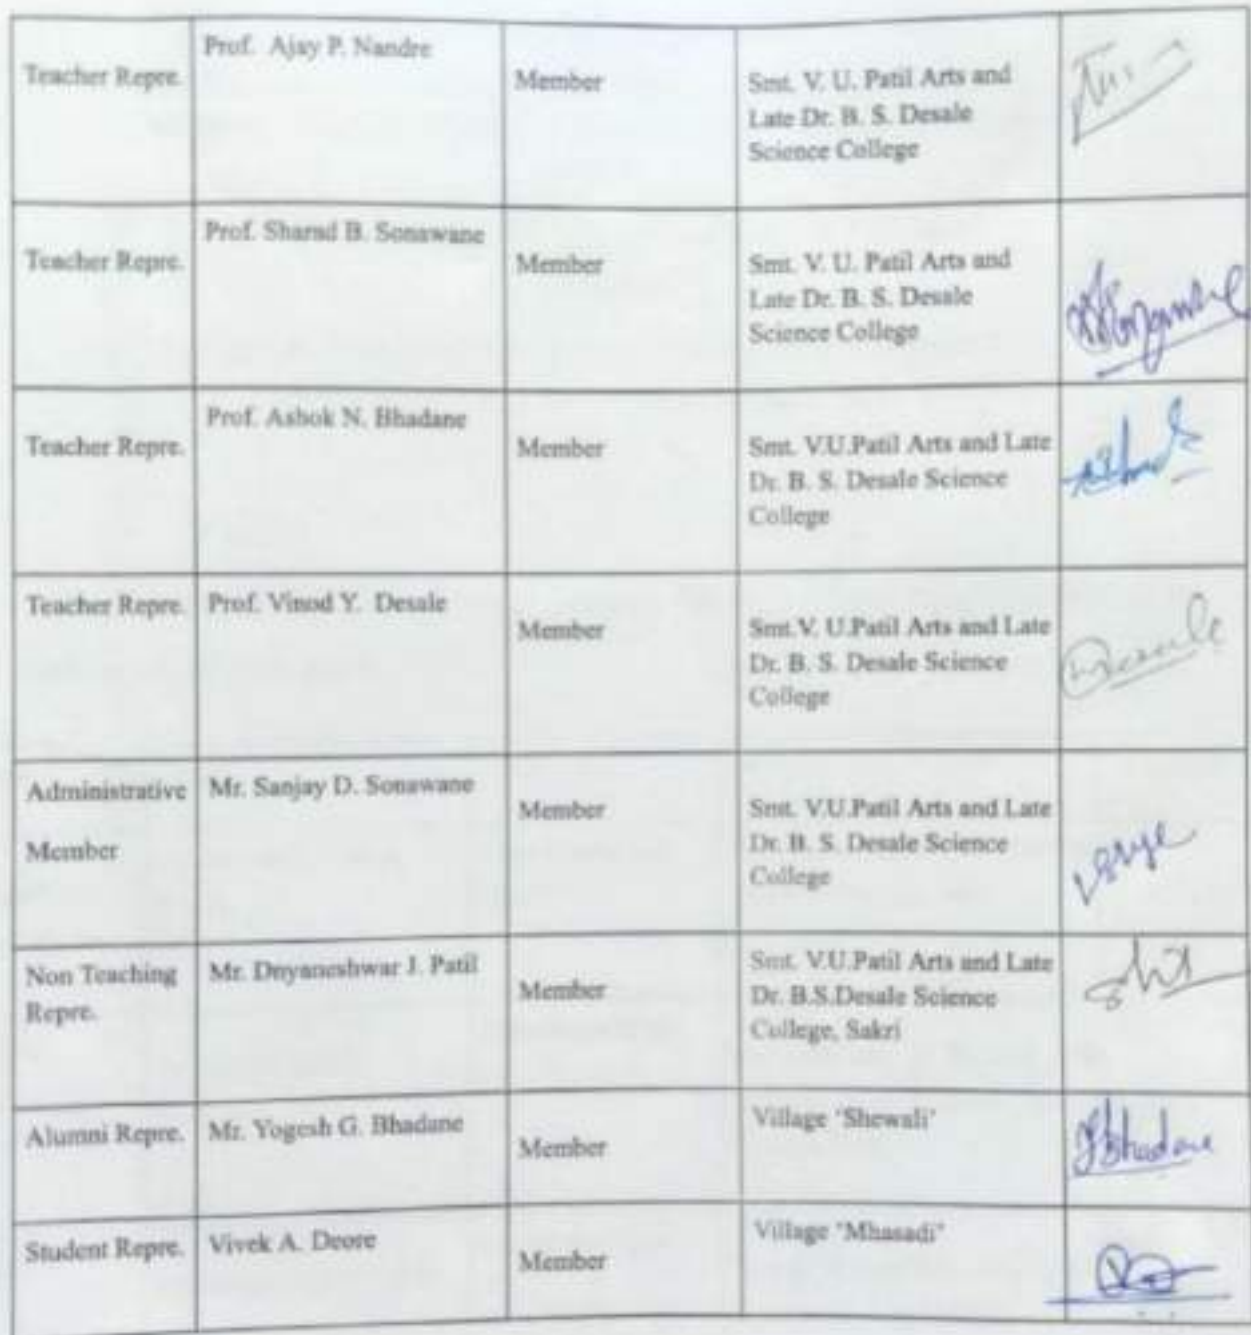 Teacher Repre.
Prof. Ajay P. Nandre
Member
Smt. V. U. Patil Arts and
Late Dr. B. S. Desale
Science College
Teacher Repre.
Prof. Sharad B. Sonawane
Member
Smt. V. U. Patil Arts and
Late Dr. B. S. Desale
Science College
Teacher Repre.
Prof. Ashok N. Bhadane
Member
Smt. V.U.Patil Arts and Late
Dr. B. S. Desale Science
College
Teacher Repre.
Prof. Vinod Y. Desale
Member
Smt.V. U.Patil Arts and Late
Dr. B. S. Desale Science
College
Administrative
Member
Mr. Sanjay D. Sonawane
Member
Smt. V.U.Patil Arts and Late
Dr. B. S. Desale Science
College
Non Teaching
Repre.
Mr. Dnyaneshwar J. Patil
Member
Smt. V.U.Patil Arts and Late
Dr. B.S.Desale Science
College, Sakri
Alumni Repre.
Mr. Yogesh G. Bhadane
Member
Village 'Shewali'
Bhadane
Student Repre.
Vivek A. Deore
Member
Village "Mhasadi"